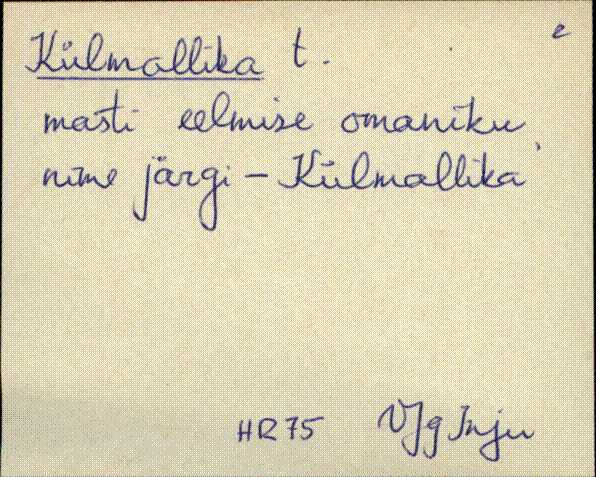 e
Külmallika t.
masti eelmise omaniku
nime järgi – Külmallika
HR 75 VJg Inju